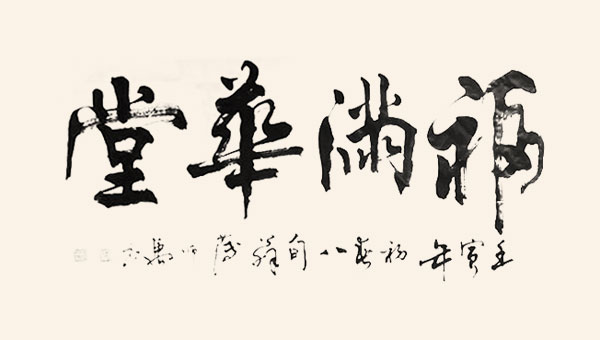 福滿華堂
壬寅年初春八旬